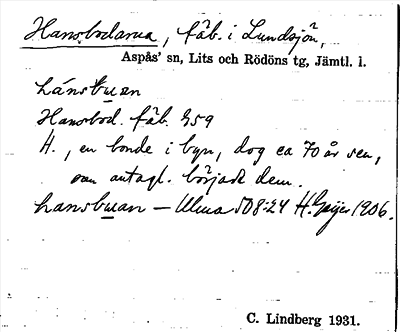 Hansbodarna, fäb. i Lundsjön,
Aspås' sn, Lits och Rödöns tg, Jämtl. l.
hánsbuan
Hansbod. fäb. 959
H., en bonde i byn, dog ca 70 år sen,
som antagl. började dem.
hansbuan — Ulma 508:24 H. Geijer 1906.
C. Lindberg 1931.